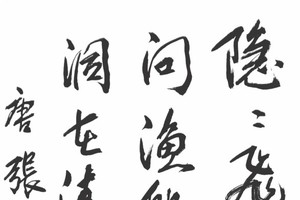 隐〻飛
问渔
洞在清
唐張